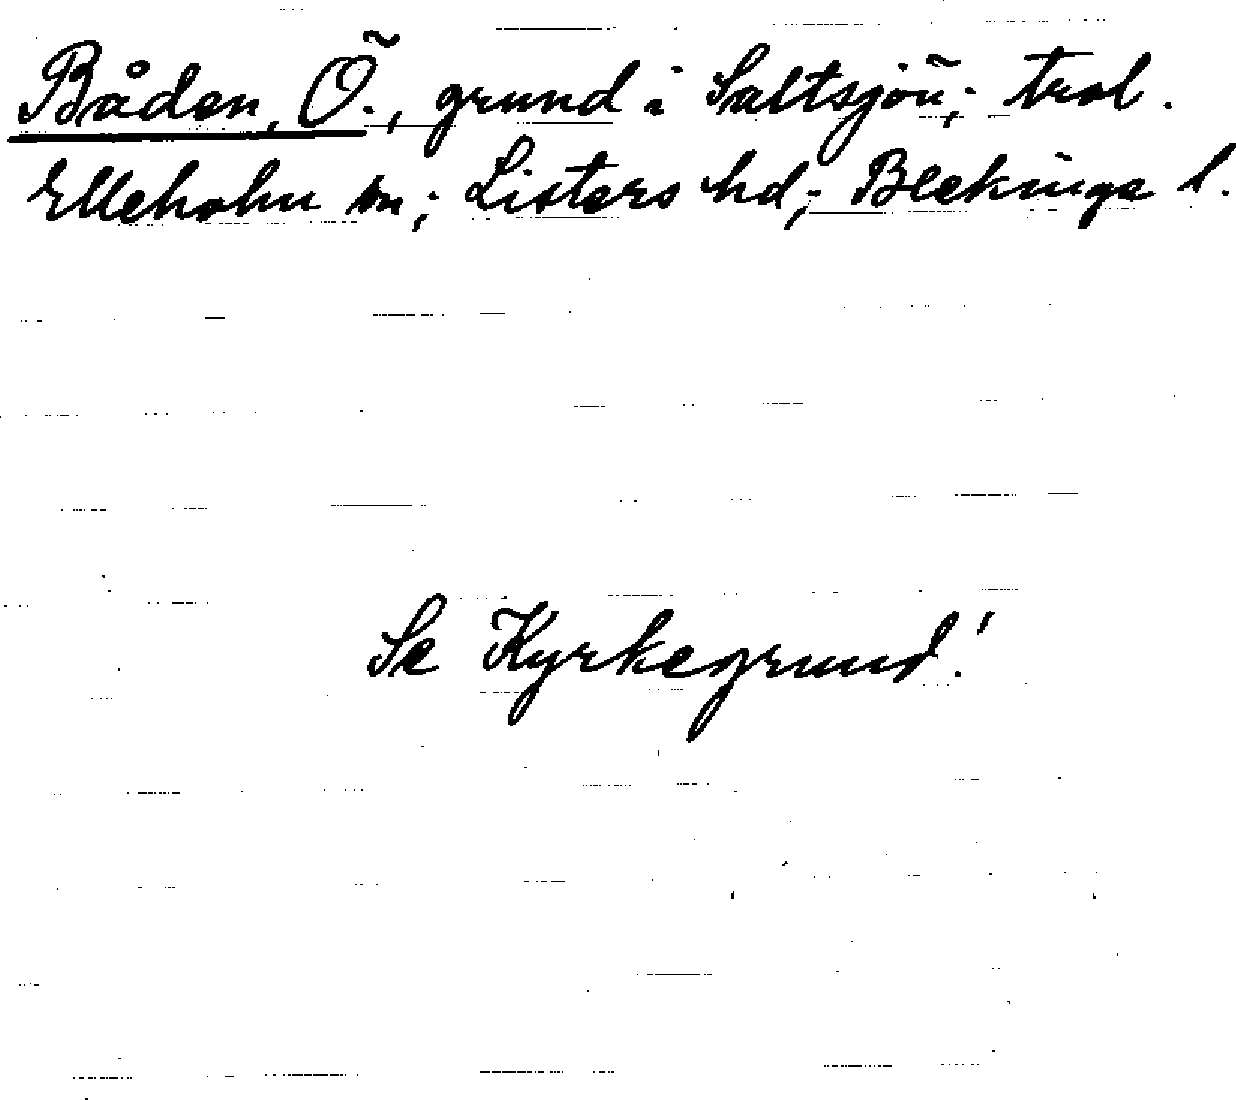 Båden, Ö., grund i Saltsjön; trol.
Elleholm sn; Listers hd; Blekinge l.
Se Kyrkegrund!